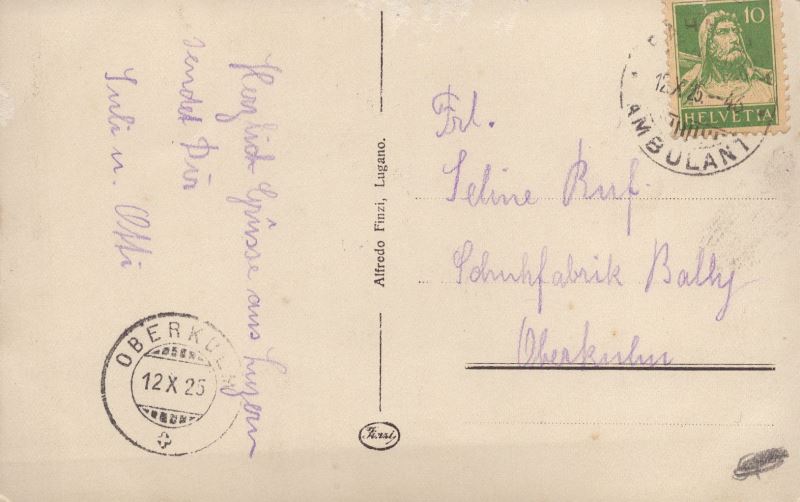 Herzliche Grüsse aus Luzern
sendet Dir
Juli u. Otti
OBERKULM
12 X 25
Alfredo Finzi, Lugano.
Finzi
10
HELVETIA
12.X.25.
AMBULANT
Frl.
Seline Ruf.
Schuhfabrik Bally
Oberkulm